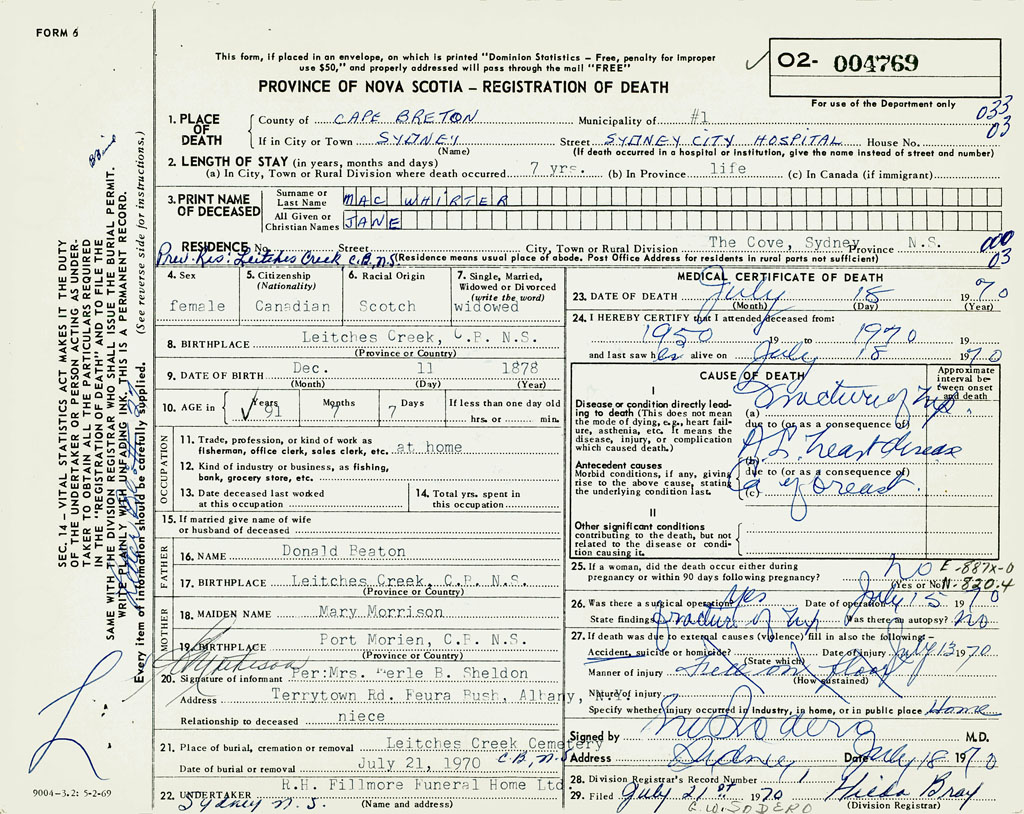 FORM 6
This form, if placed in an envelope, on which is printed "Dominion Statistics – Free, penalty for improper
use $50," and properly addressed will pass through the mail "FREE"
PROVINCE OF NOVA SCOTIA – REGISTRATION OF DEATH
02- 004769
For use of the Department only
033
03
1. PLACE OF DEATH
County of CAPE BRETON Municipality of #1
If in City or Town SYDNEY Street SYDNEY CITY HOSPITAL House No.
(Name) (If death occurred in a hospital or institution, give the name instead of street and number)
2. LENGTH OF STAY (in years, months and days)
(a) In City, Town or Rural Division where death occurred 7 yrs. (b) In Province life (c) In Canada (if immigrant)
3. PRINT NAME OF DECEASED
Surname or Last Name MAC WHIRTER
All Given or Christian Names JANE
RESIDENCE No. Street City, Town or Rural Division The Cove, Sydney Province N.S.
000
03
Prev. Res: Leitches Creek C.B, N.S. (Residence means usual place of abode. Post Office Address for residents in rural parts not sufficient)
4. Sex female
5. Citizenship (Nationality) Canadian
6. Racial Origin Scotch
7. Single, Married, Widowed or Divorced (write the word) widowed
8. BIRTHPLACE Leitches Creek, C.B. N.S.
(Province or Country)
9. DATE OF BIRTH Dec. 11 1878
(Month) (Day) (Year)
10. AGE in Years 91 Months 7 Days 7 If less than one day old hrs. or min.
OCCUPATION
11. Trade, profession, or kind of work as
fisherman, office clerk, sales clerk, etc. at home
12. Kind of industry or business, as fishing,
bank, grocery store, etc.
13. Date deceased last worked
at this occupation
14. Total yrs. spent in
this occupation
15. If married give name of wife
or husband of deceased
FATHER
16. NAME Donald Beaton
17. BIRTHPLACE Leitches Creek, C.B. N.S.
(Province or Country)
MOTHER
18. MAIDEN NAME Mary Morrison
19. BIRTHPLACE Port Morien, C.B. N.S.
(Province or Country)
20. Signature of informant Per:Mrs. Merle B. Sheldon
Address Terrytown Rd. Feura Bush, Albany,
Relationship to deceased niece
21. Place of burial, cremation or removal Leitches Creek Cemetery
C.B, N.S
Date of burial or removal July 21, 1970
22. UNDERTAKER R.H. Fillmore Funeral Home Ltd
Sydney N.S. (Name and address)
MEDICAL CERTIFICATE OF DEATH
23. DATE OF DEATH July 18 1970
(Month) (Day) (Year)
24. I HEREBY CERTIFY that I attended deceased from:
1950 19 to 1970 19
and last saw her alive on July 18 1970
CAUSE OF DEATH
Approximate interval between onset and death
I
Disease or condition directly leading to death (This does not mean the mode of dying, e.g., heart failure, asthenia, etc. It means the disease, injury, or complication which caused death.)
(a) Fracture of hip
due to (or as a consequence of)
(b) A.S. heart disease
Antecedent causes
Morbid conditions, if any, giving rise to the above cause, stating the underlying condition last.
due to (or as a consequence of)
(c) Ca of breast
II
Other significant conditions contributing to the death, but not related to the disease or condition causing it.
25. If a woman, did the death occur either during
pregnancy or within 90 days following pregnancy? no
(Yes or No)
E-887X-0
N-820.4
26. Was there a surgical operation? Yes Date of operation July 15 1970
State findings fracture of hip Was there an autopsy? no
27. If death was due to external causes (violence) fill in also the following –
Accident, suicide or homicide? Date of injury July 13 1970
(State which)
Manner of injury Fell on floor
(How sustained)
Nature of injury
Specify whether injury occurred in industry, in home, or in public place Home
Signed by M.D.
Address Sydney Date July 18 1970
28. Division Registrar's Record Number
29. Filed July 21st 1970 Hilda Bray
(Division Registrar)
G.W. SODERO
SEC. 14 – VITAL STATISTICS ACT MAKES IT THE DUTY
OF THE UNDERTAKER OR PERSON ACTING AS UNDER-
TAKER TO OBTAIN ALL THE PARTICULARS REQUIRED
IN THE "REGISTRATION OF DEATH" AND TO FILE THE
SAME WITH THE DIVISION REGISTRAR WHO SHALL ISSUE THE BURIAL PERMIT.
WRITE PLAINLY WITH UNFADING INK. THIS IS A PERMANENT RECORD.
Every item of information should be carefully supplied. (See reverse side for instructions.)
9004-3.2: 5-2-69